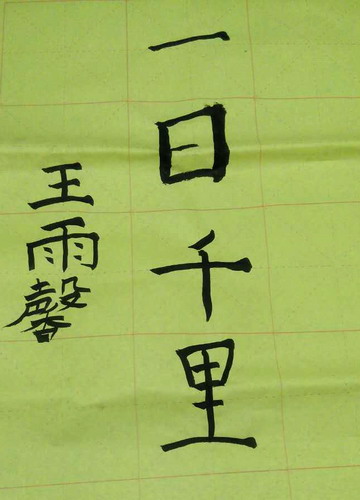 一日千里
王雨馨